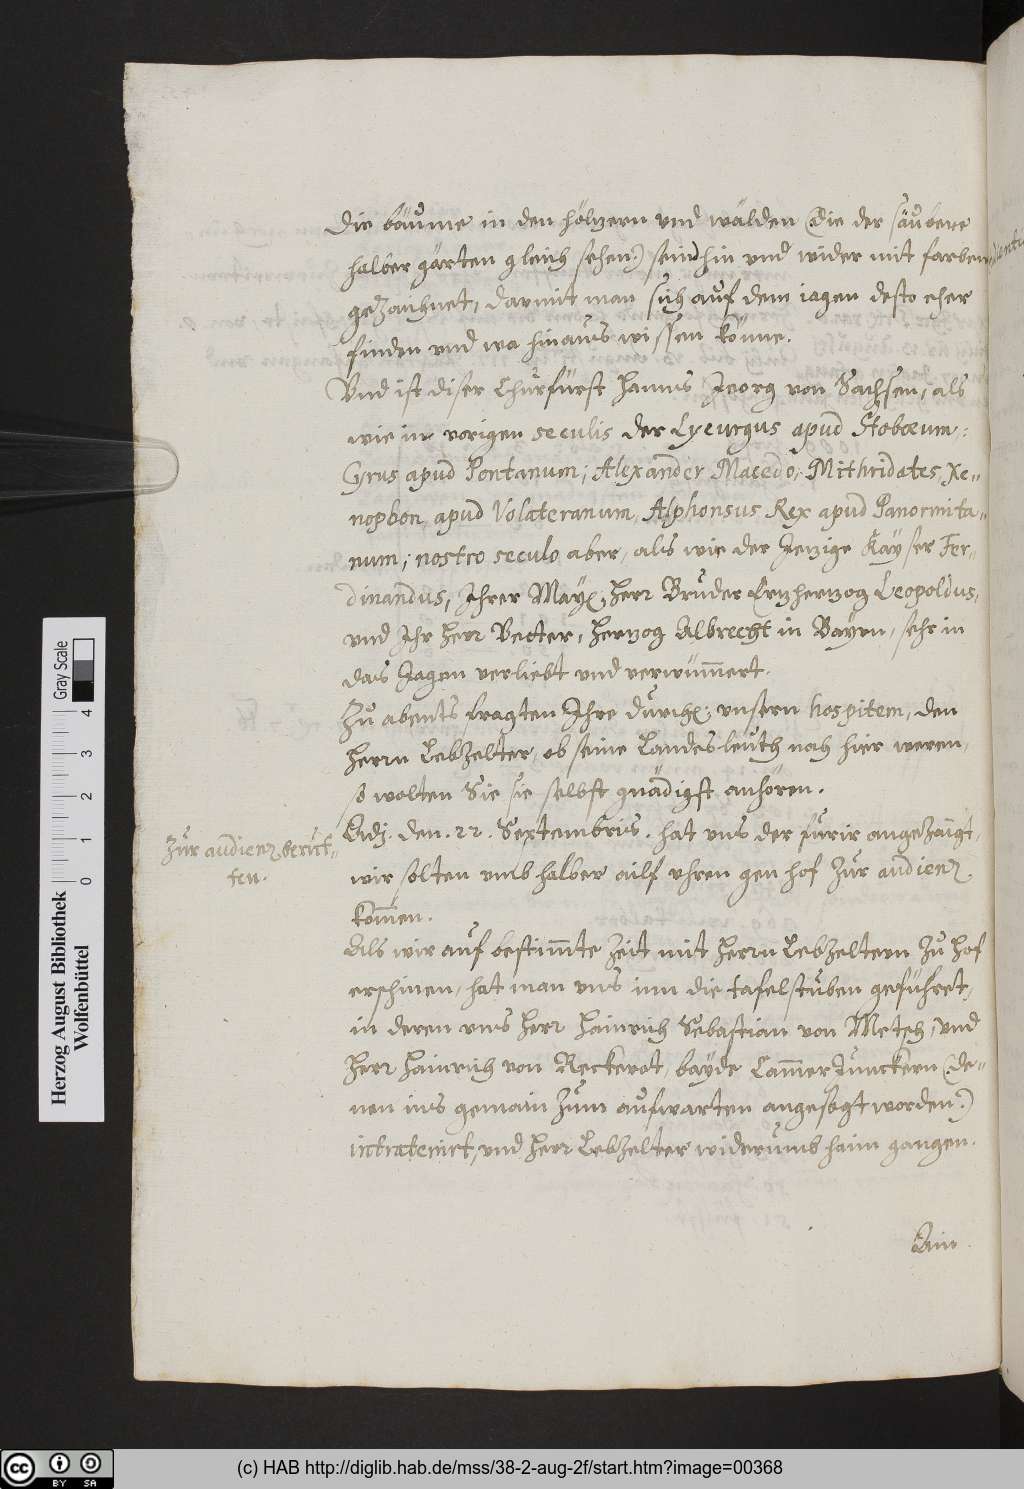 die bäume in den höltzern vnd wälden (die der säubere
halber gärten gleich sehen) seind hin vnd wider mit farben
gezaichnet, darmit man sich auf dem iagen desto eher
finden vnd wa hinaus wissen könne.
Vnd ist diser Churfürst Hanns Jeorg von Sachsen, als
wie in vorigen seculis der Lycurgus apud Stobœum:
Cyrus apud Pontanum; Alexander Macedo, Mithridates, Xe-
nophon apud Volateranum, Alphonsus Rex apud Panormita-
num; nostro seculo aber, als wie der Jetzige Kayser Fer-
dinandus, Ihrer May. Herr Bruder Ertzhertzog Leopoldus,
vnd Ihr Herr Vetter, Hertzog Albrecht in Bayrn, sehr in
das Jagen verliebt vnd verwümmert.
Zu abents fragten Ihre Durch. vnsern hospitem, den
Herrn Lebzelter, ob seine Landesleuth noch hier weren,
so wolten Sie sie selbst gnädigst anhören.
Zur audienz beruf-
fen.
Adj. den. 22. Septembris. hat vns der furir angezaigt,
wir solten vmb halber ailf vhren gen hof zur audienz
kommen.
Als wir auf bestimmte Zeit mit Herrn Lebzeltern zu hof
erschinen, hat man vns inn die tafelstuben geführet,
in deren vns Herr Hainrich Sebastian von Metsch, vnd
Herr Hainrich von Reckerot, bayde Cammer Junckern (de-
nen ins gemain zum aufwarten angesagt worden)
intratenirt, vnd Herr Lebzelter widerumb haim gangen.
Ain
Herzog August Bibliothek
Wolfenbüttel
Gray Scale
0 1 2 3 4
cc BY SA
(c) HAB http://diglib.hab.de/mss/38-2-aug-2f/start.htm?image=00368